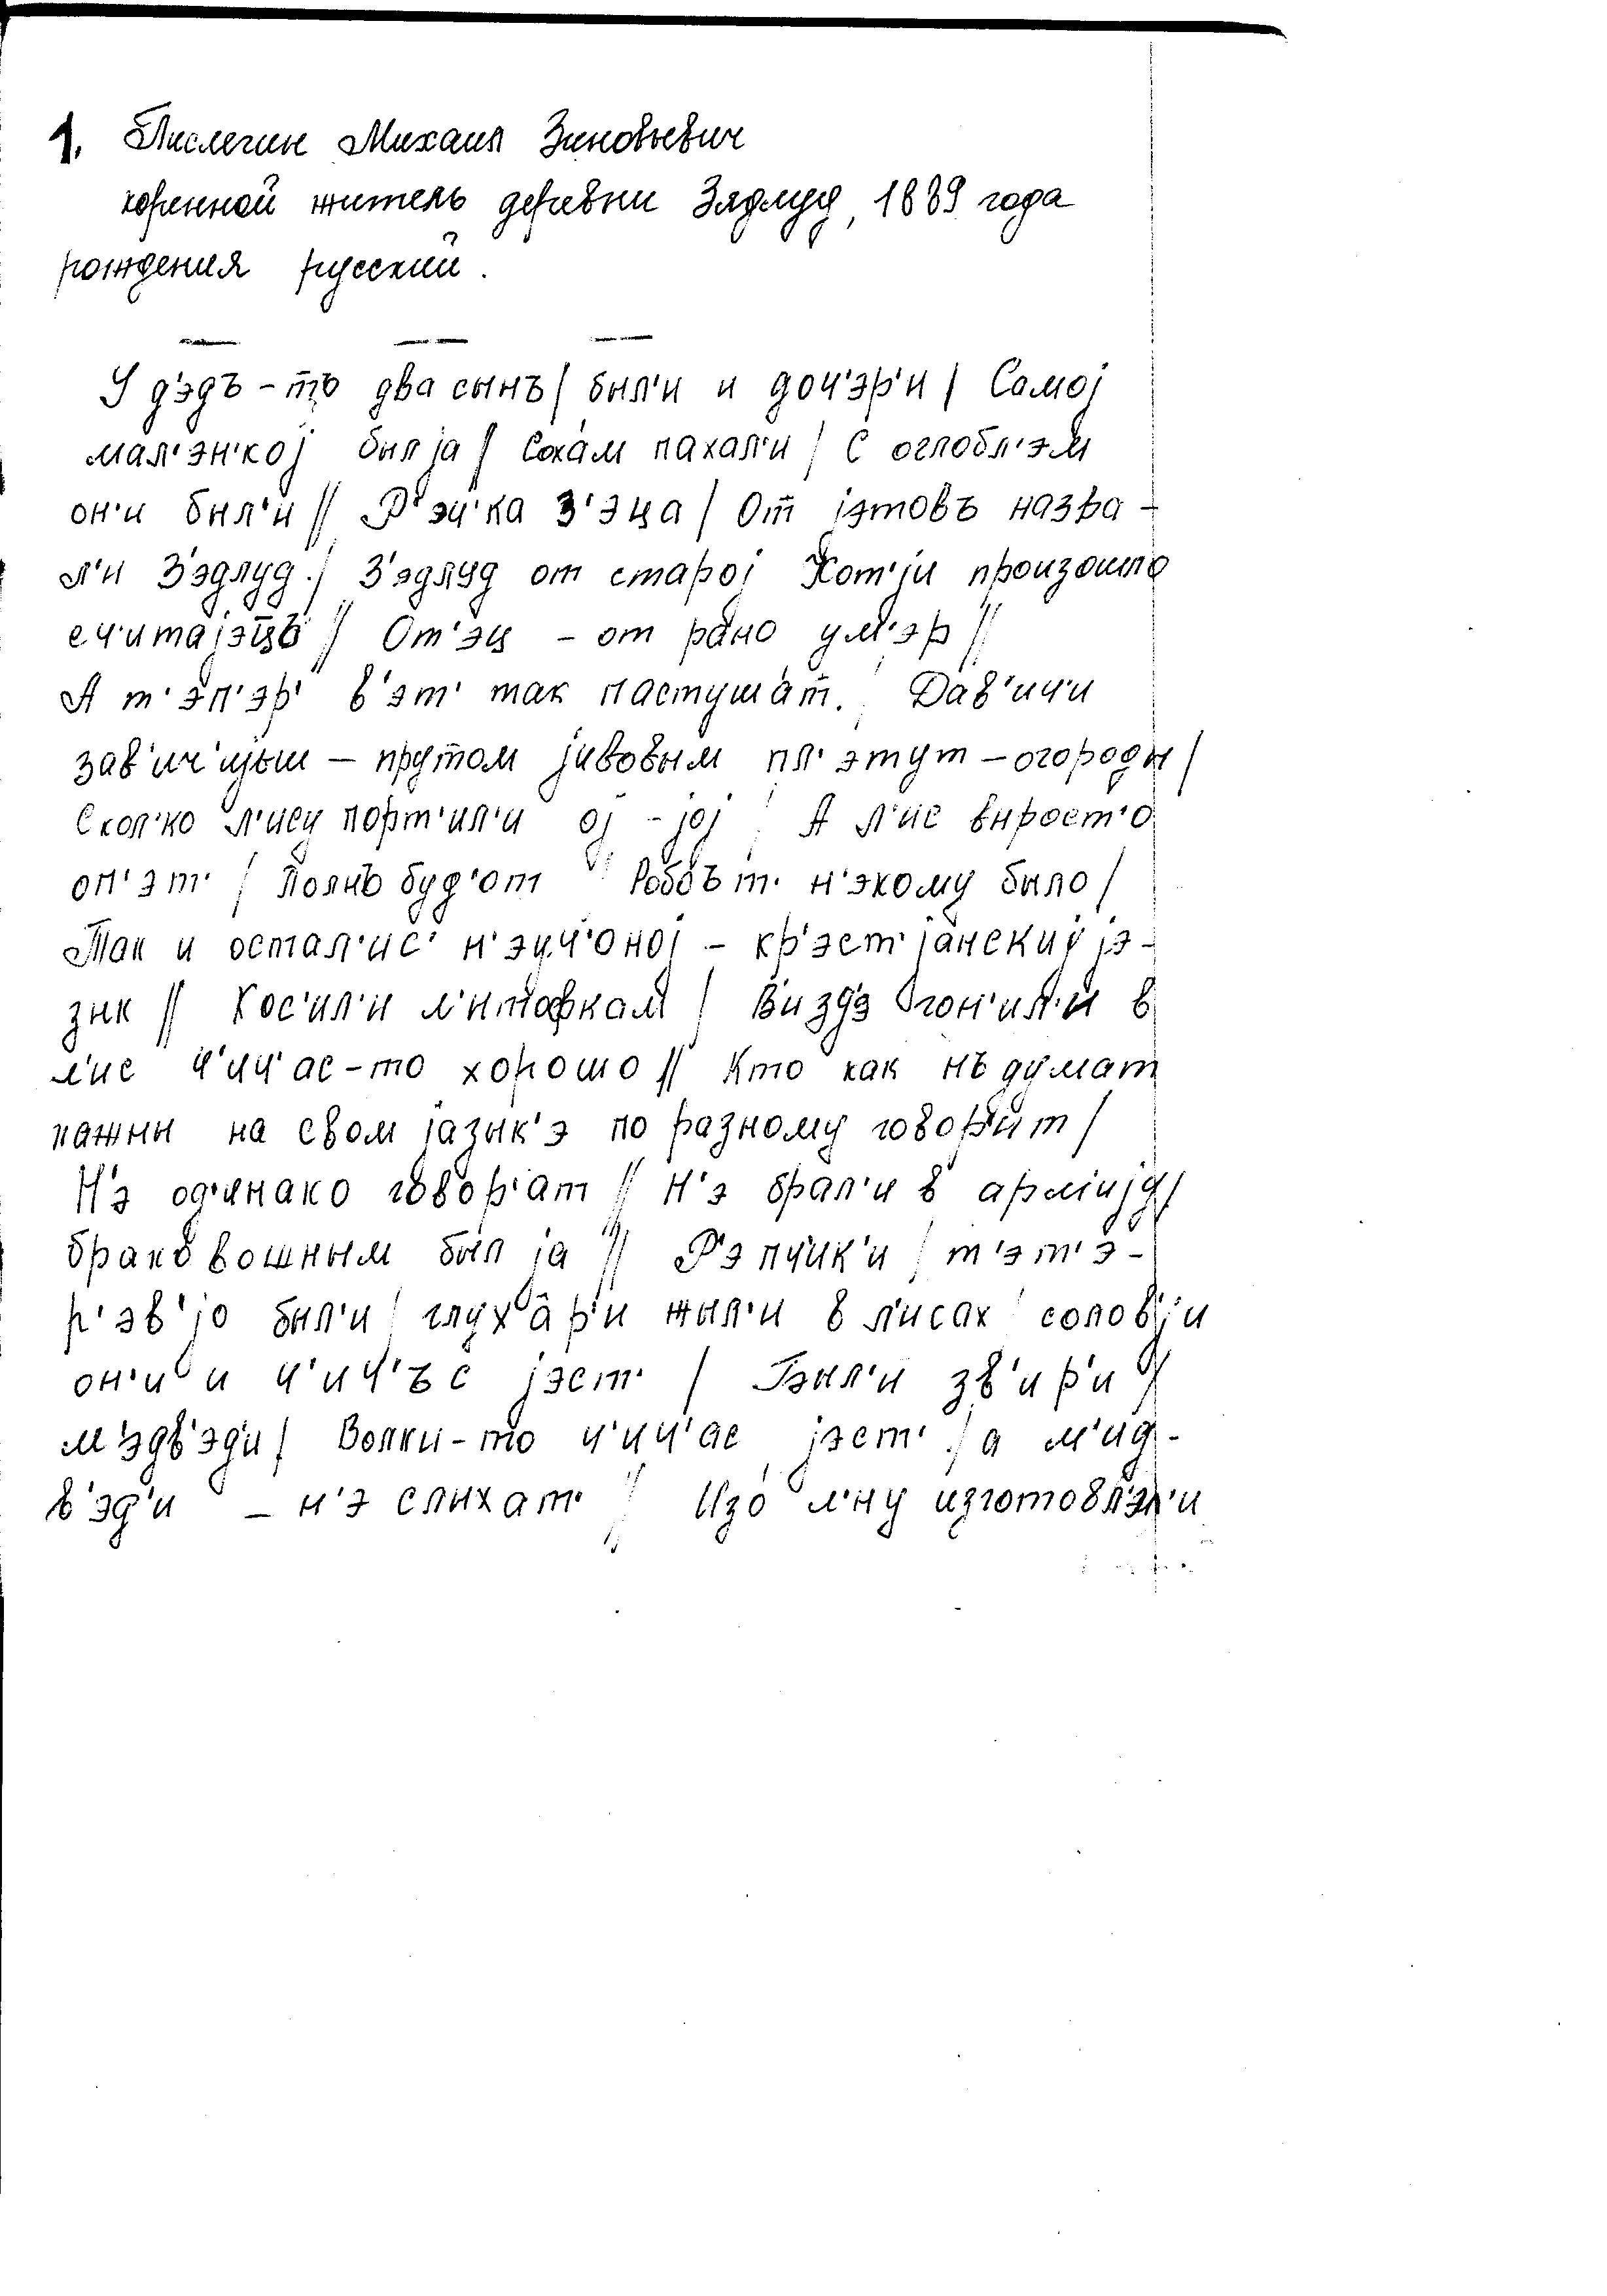 1. Писмегин Михаил Зиновьевич
коренной житель деревни Зядлуд, 1889 года
рождения русский.
У д'эдъ-тъ два сынъ/ был'и и доч'эр'и/ Самој
мал'эн'кој был ја// Сохам пахал'и/ С оглобл'эм
он'и был'и// Р'эч'ка З'эца/ От јэтовъ назва-
л'и З'эдлуд./ З'эдлуд от старој Кот'ји произошло
сч'итајэцъ// От'эц-от рано ум'эр//
А т'эп'эр' в'эт' так пастушат. Дав'ич'и
зав'ич'ијыш - прутом јивовым пл'этут-огороды/
Скол'ко л'ису порт'ил'и ој-јој А л'ис вырост'о
оп'эт'/ Полнъ буд'от Робóът' н'экому было/
Так и остал'ис' н'эуч'оној - кр'эст'јанскиј јэ-
зык// Кос'ил'и л'итофкам/ В'издэ гон'ил'и в
л'ис ч'ич'ас-то хорошо// Кто как нъдумат
кажны на свом јазык'э по разному говор'ит/
Н'э од'инако говор'ат// Н'э брал'и в арм'ију/
браковошным был ја// Р'эпч'ик'и/ т'эт'э-
р'эв'јо был'и/ глухар'и жыл'и в л'исах соловји
он'и и ч'ич'ъс јэст'/ Был'и зв'ир'и/
м'эдв'эд'и/ Волки-то ч'ич'ас јэст'./ а м'ид-
в'эд'и - н'э слыхат' Изо л'ну изготовл'эл'и